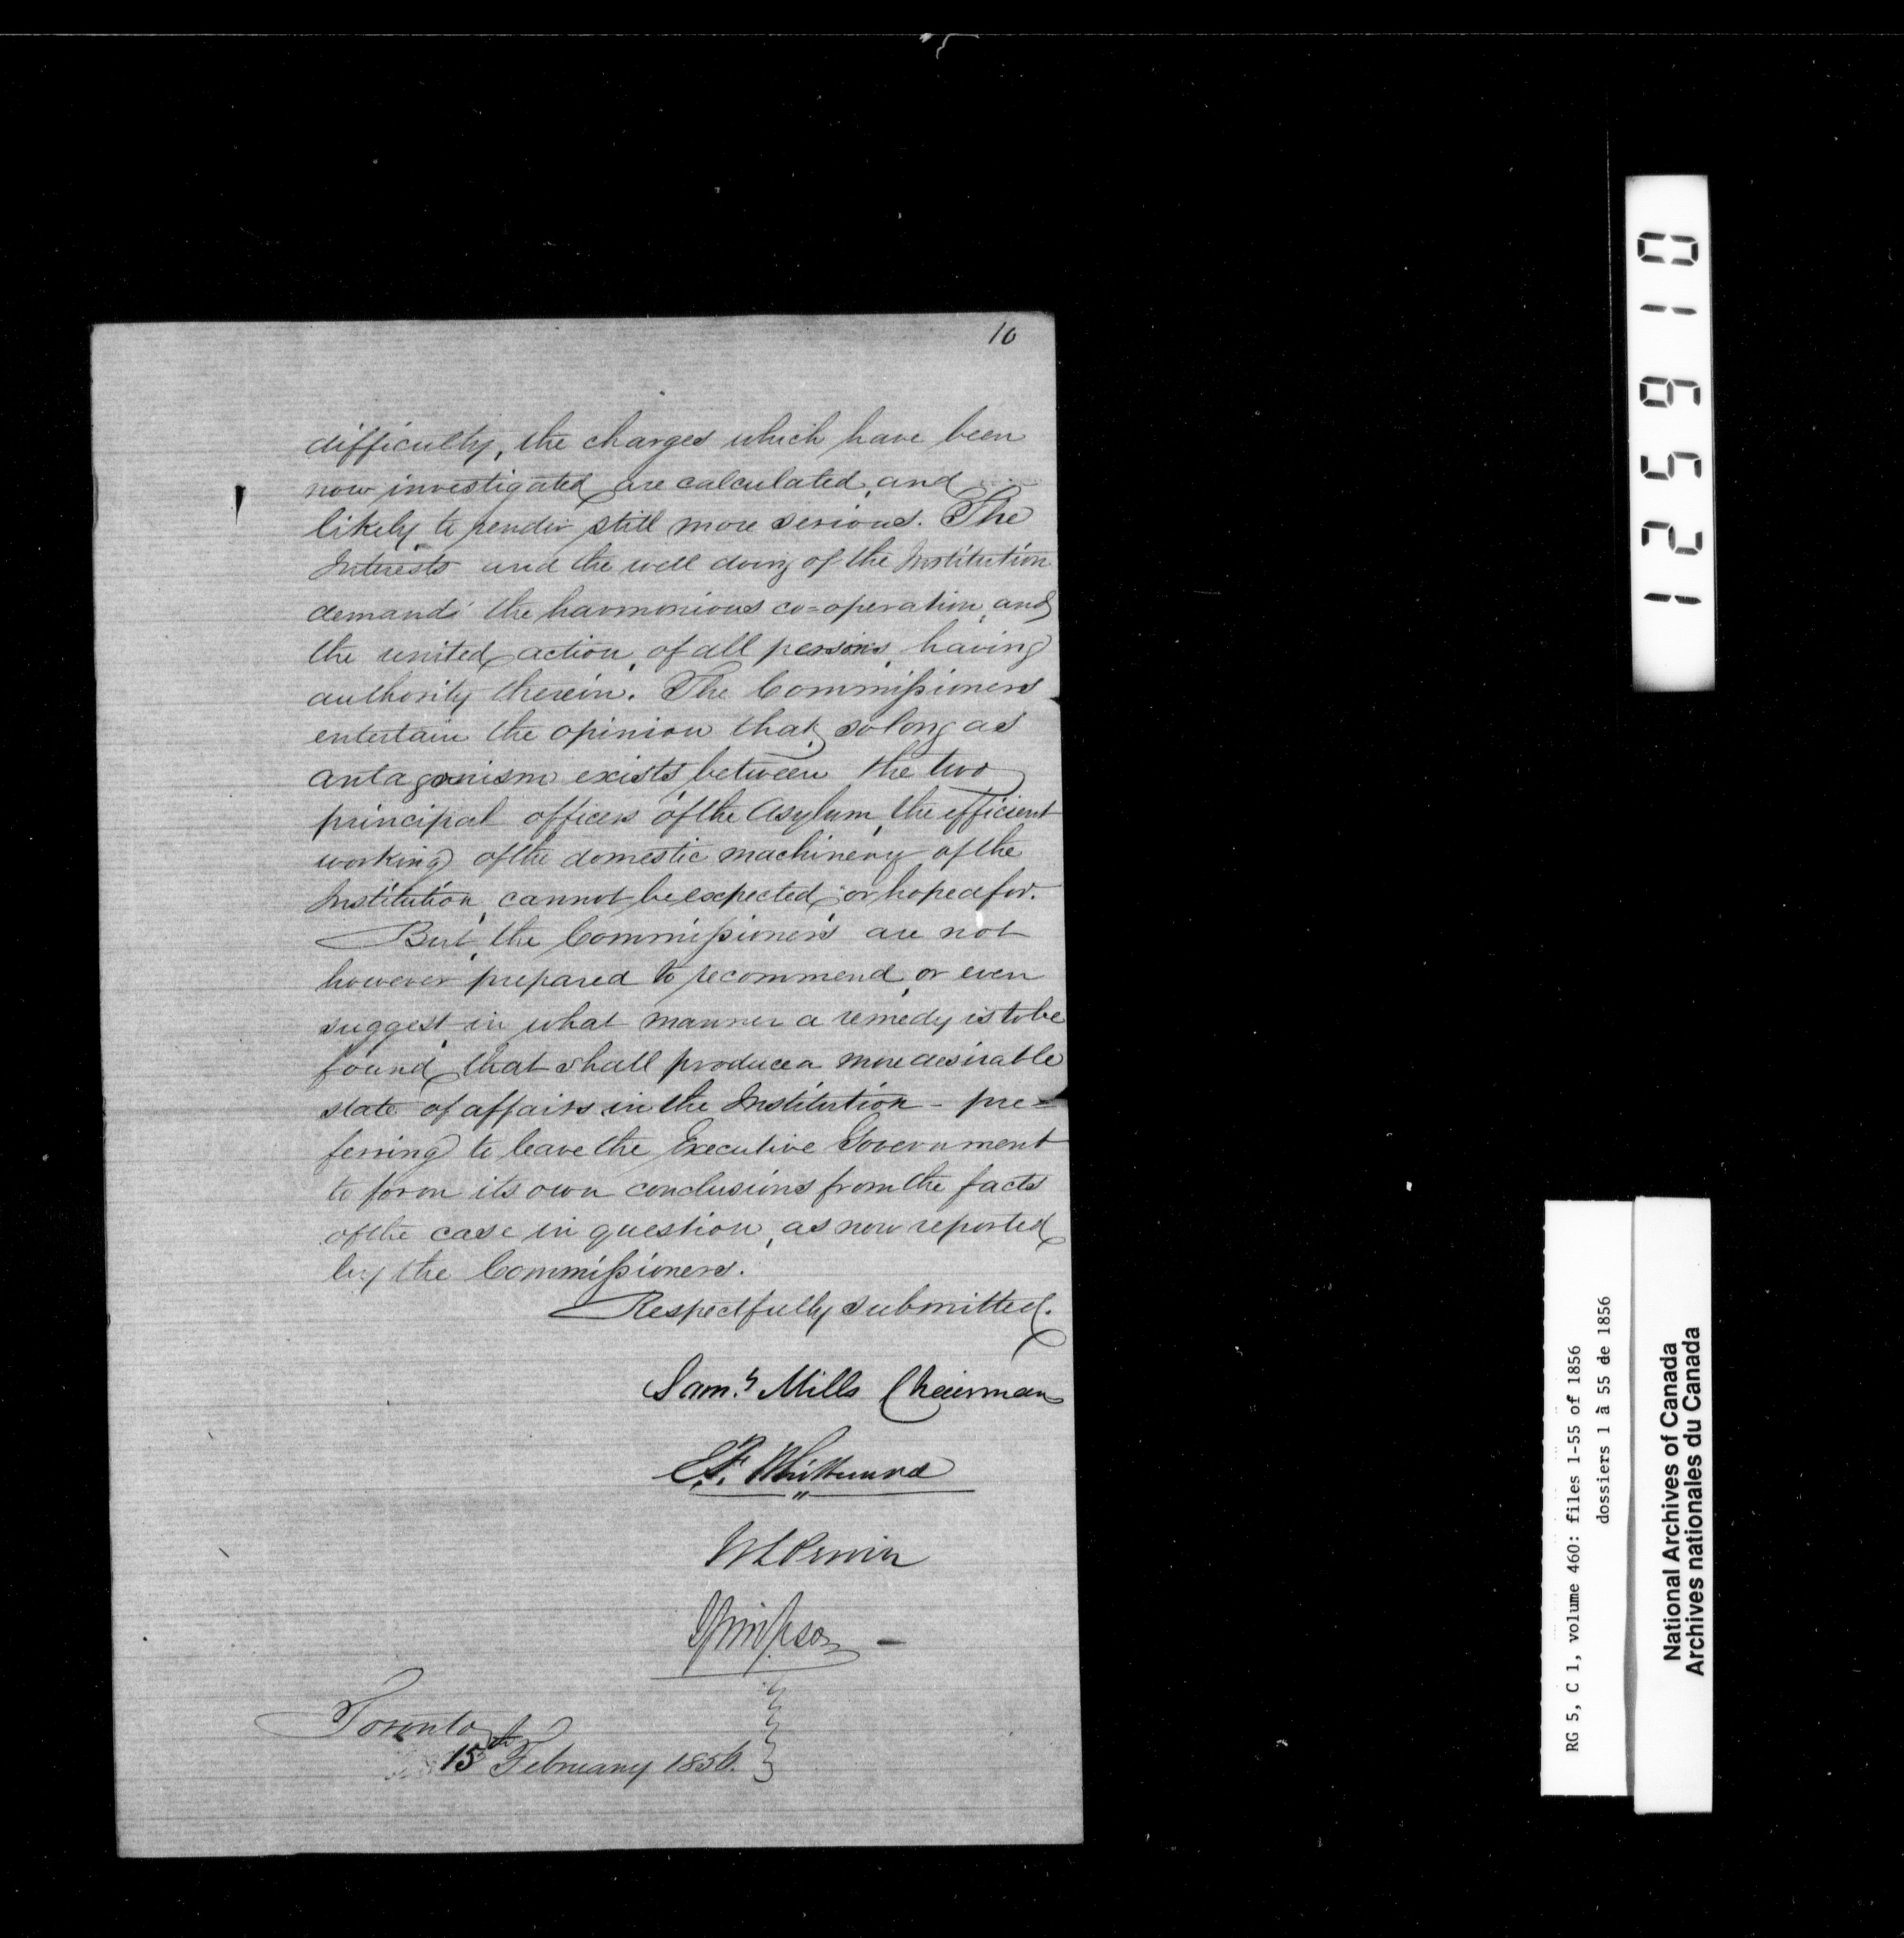 10
difficulty, the charges which have been
now investigated, are calculated, and
likely to render still more serious. The
Interests and the well doing of the Institution
demand the harmonious co=operation, and
the united action, of all persons, having
authority therein. The Commissioners
entertain the opinion that, so long as
antagonism exists, between the two
principal officers of the Asylum, the efficient
working of the domestic machinery of the
Institution, cannot be expected, or hoped for.
But, the Commissioners are not
however prepared to recommend, or even
suggest in what manner a remedy is to be
found, that shall produce a more desirable
state of affairs in the Institution - pre=
ferring to leave the Executive Government
to form its own conclusions from the facts
of the case in question, as now reported
by the Commissioners.
Respectfully submitted.
Saml. Mills Chairman
E.F. Whittemore
W L Perrin
J Simpson —
Toronto
15th February 1856.
125910
RG 5, C 1, volume 460: files 1-55 of 1856
dossiers 1 à 55 de 1856
National Archives of Canada
Archives nationales du Canada